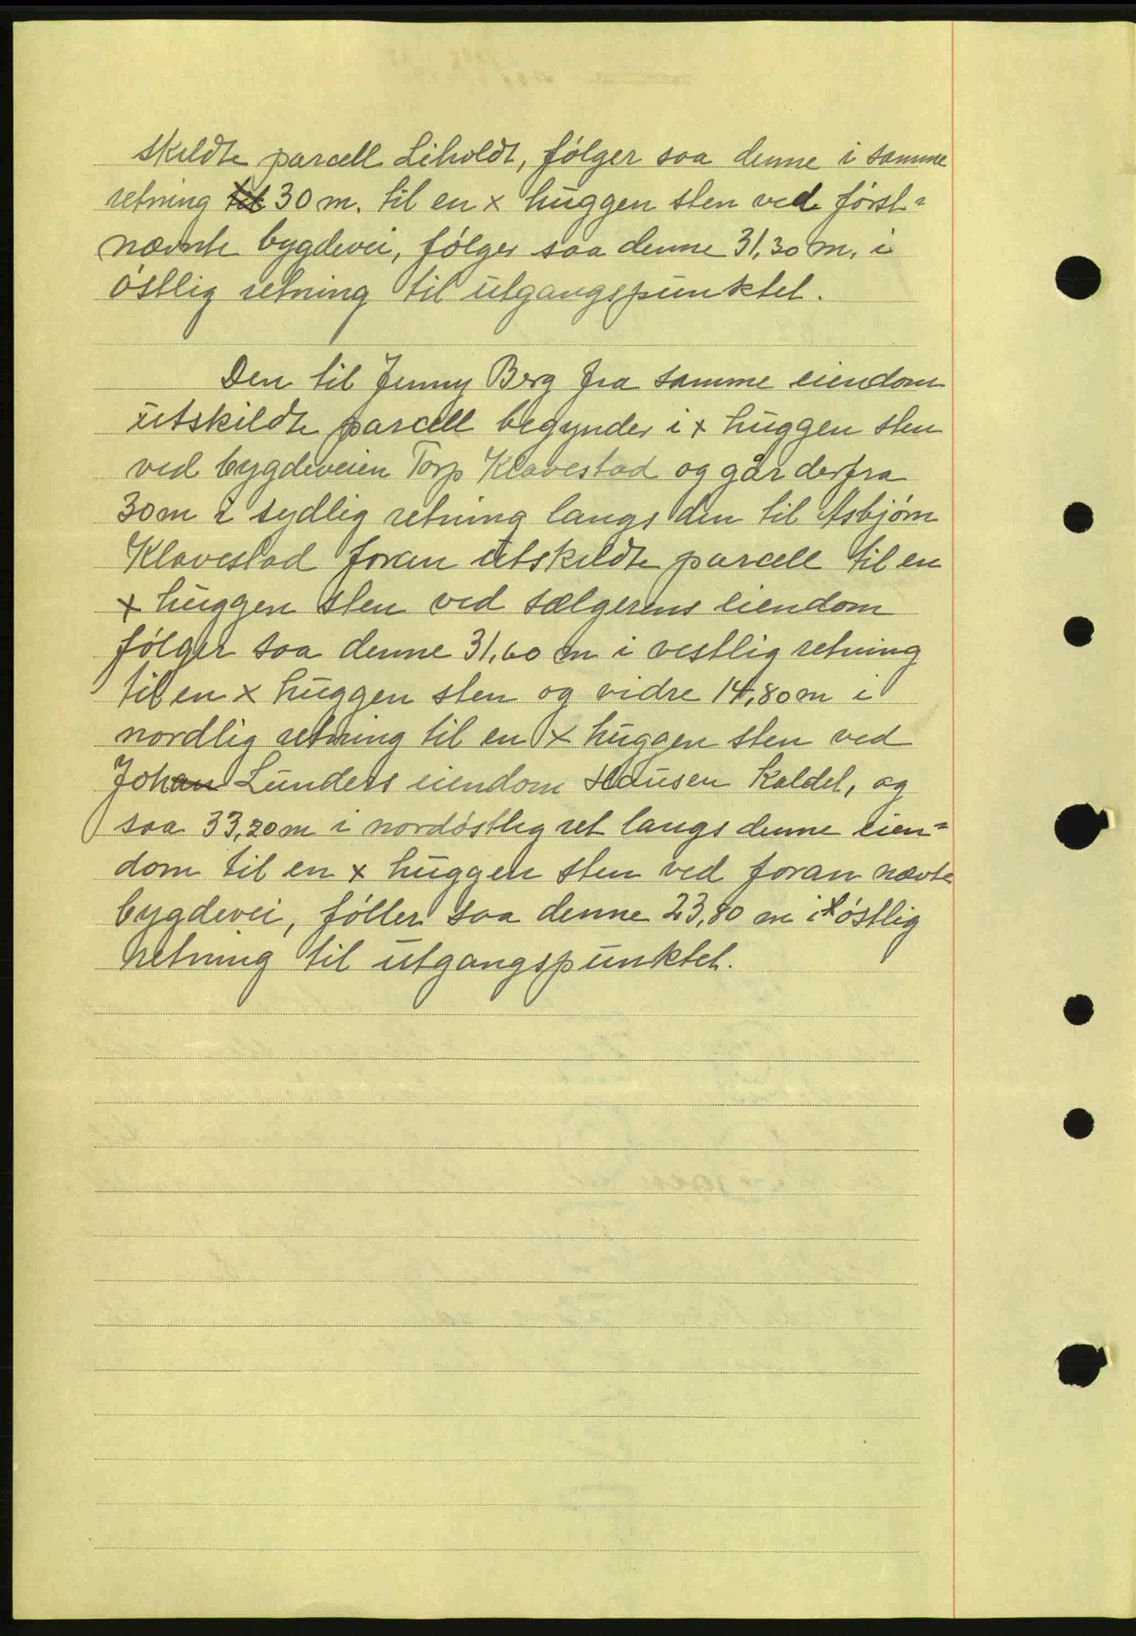 skildte parcell Liholdt, følger saa denne i samme
retning til 30 m. til en x huggen sten ved først=
nævnte bygdevei, følger saa denne 31,30 m. i
østlig retning til utgangspunktet.
Den til Jenny Berg fra samme eiendom
utskildte parcell begynder i x huggen sten
ved bygdeveien Torp Klavestad og går derfra
30 m i sydlig retning langs den til Asbjørn
Klavestad foran utskildte parcell til en
x huggen sten ved sælgerens eiendom
følger saa denne 31,60 m i vestlig retning
til en x huggen sten og vidre 14,80 m i
nordlig retning til en x huggen sten ved
Johan Lunders eiendom Hausen kaldet, og
saa 33,20 m i nordøstlig ret langs denne eien=
dom til en x huggen sten ved foran nævte
bygdevei, føller saa denne 23,80 m i x østlig
retning til utgangspunktet.